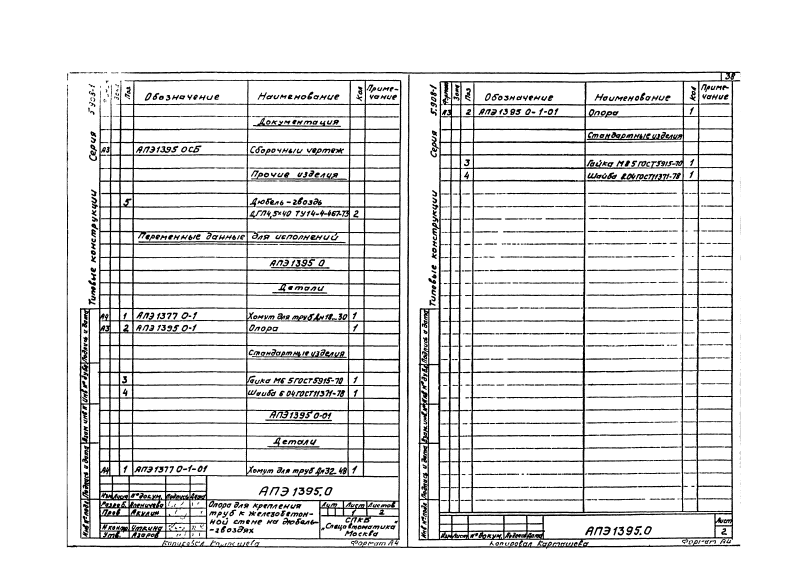 38
Серия 5.908-1
Типовые конструкции
Поз Обозначение Наименование Кол Приме-
чание
Документация
А3 АПЭ1395 0СБ Сборочный чертеж
Прочие изделия
5 Дюбель-гвоздь
ДГП4,5×40 ТУ14-4-467-73 2
Переменные данные для исполнений
АПЭ1395 0
Детали
А4 1 АПЭ1377 0-1 Хомут для труб Дн18...30 1
А3 2 АПЭ1395 0-1 Опора 1
Стандартные изделия
3 Гайка М6 5ГОСТ5915-70 1
4 Шайба 6 04ГОСТ11371-78 1
АПЭ1395 0-01
Детали
А4 1 АПЭ1377 0-1-01 Хомут для труб Дн32..48 1
АПЭ1395.0
Изм Лист № докум. Подпись Дата
Разраб.
Пров Акулин
Н контр. Уткина
Утв. Азаров
Опора для крепления
труб к железобетон-
ной стене на дюбель-
-гвоздях
Лит Лист Листов
1 2
СПКБ
"Спецавтоматика"
Москва
Копировал
Формат А4
Инв № подл Подпись и дата Взам инв № Инв № дубл Подпись и дата
Серия 5.908-1
Типовые конструкции
Формат Зона Поз Обозначение Наименование Кол Приме-
чание
А3 2 АПЭ1395 0-1-01 Опора 1
Стандартные изделия
3 Гайка М8 5ГОСТ5915-70 1
4 Шайба 8.04ГОСТ11371-78 1
АПЭ1395.0
Лист
2
Изм Лист № докум. Подпись Дата
Копировал Карташева Формат А4
Инв № подл Подпись и дата Взам инв № Инв № дубл Подпись и дата